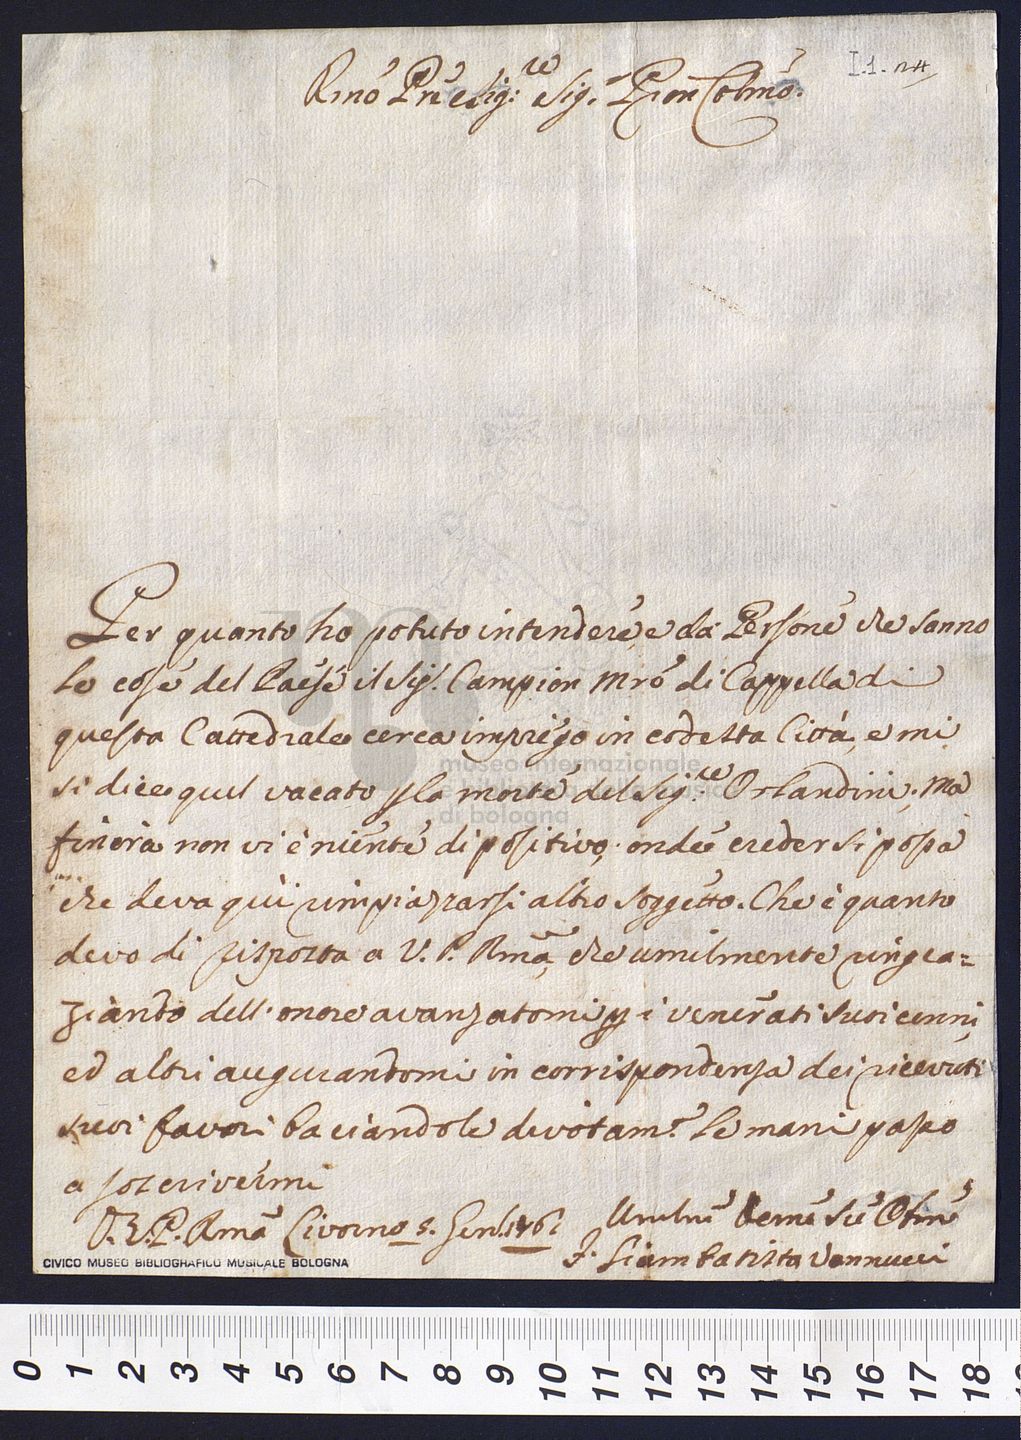 I.1. 24
Rmõ Prẽ e Sig:re Sig.r Pron Colmõ:
Per quanto ho potuto intendere, e da Persone che sanno
le cose del Paese il Sig.r Campion Mrõ di Cappella di
questa Cattedrale cerca impiego in codesta Città, e mi
si dice quel vacato p la morte del Sig:re Orlandini. Ma
finora non vi è niente di positivo, onde creder si possa
che deva quì rimpiazzarsi altro soggetto. Che è quanto
devo di risposta a V. P. Rmã, che umilmente ringra=
ziando dell'onore avanzatomi p i venerati suoi cenni,
ed altri augurandomi in corrispondenza dei ricevuti
suoi favori baciandole divotam.e le mani passo
a soscrivermi
D. V. P. Rmã Livorno 5. Gen. 1761
F. Giambatista Vannucci
museo internazionale
di bologna
CIVICO MUSEO BIBLIOGRAFICO MUSICALE BOLOGNA
0 1 2 3 4 5 6 7 8 9 10 11 12 13 14 15 16 17 18